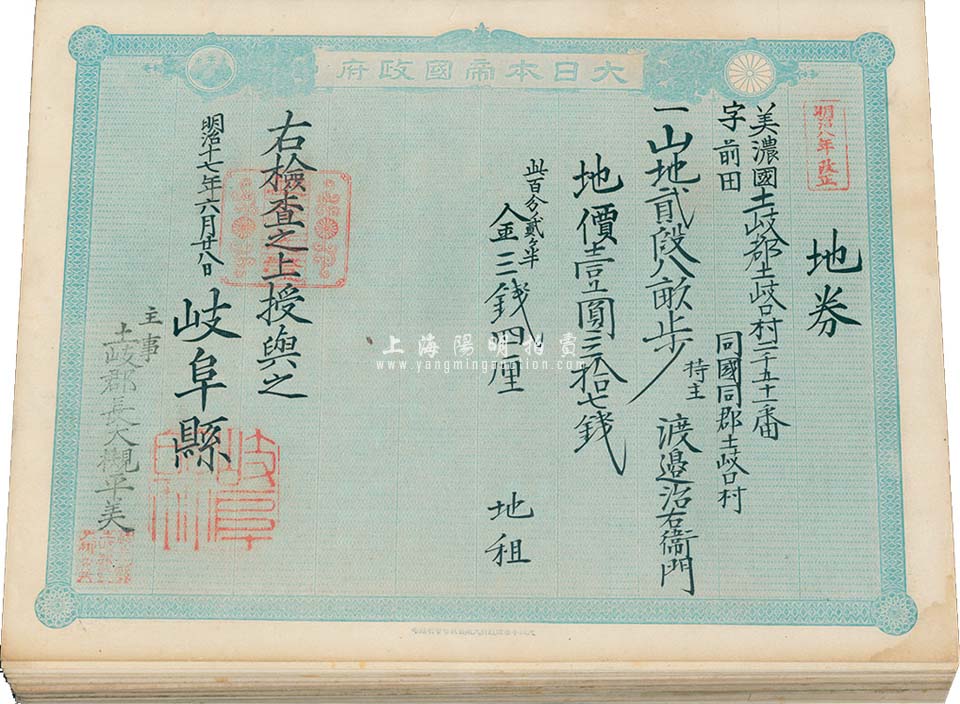 大日本帝國政府
明治八年改正
地券
美濃國土岐郡土岐口村二千五十一番
字前田
同國同郡土岐口村
一山地貳段八畝步
持主 渡邉治右衞門
地價壹圓三拾七錢
此百分ノ貳ケ半
金三錢四厘 地租
右檢查之上授與之
明治十七年六月廿八日
岐阜縣
主事
土岐郡長大觀平美
上海陽明拍賣
www.yangmingauction.com